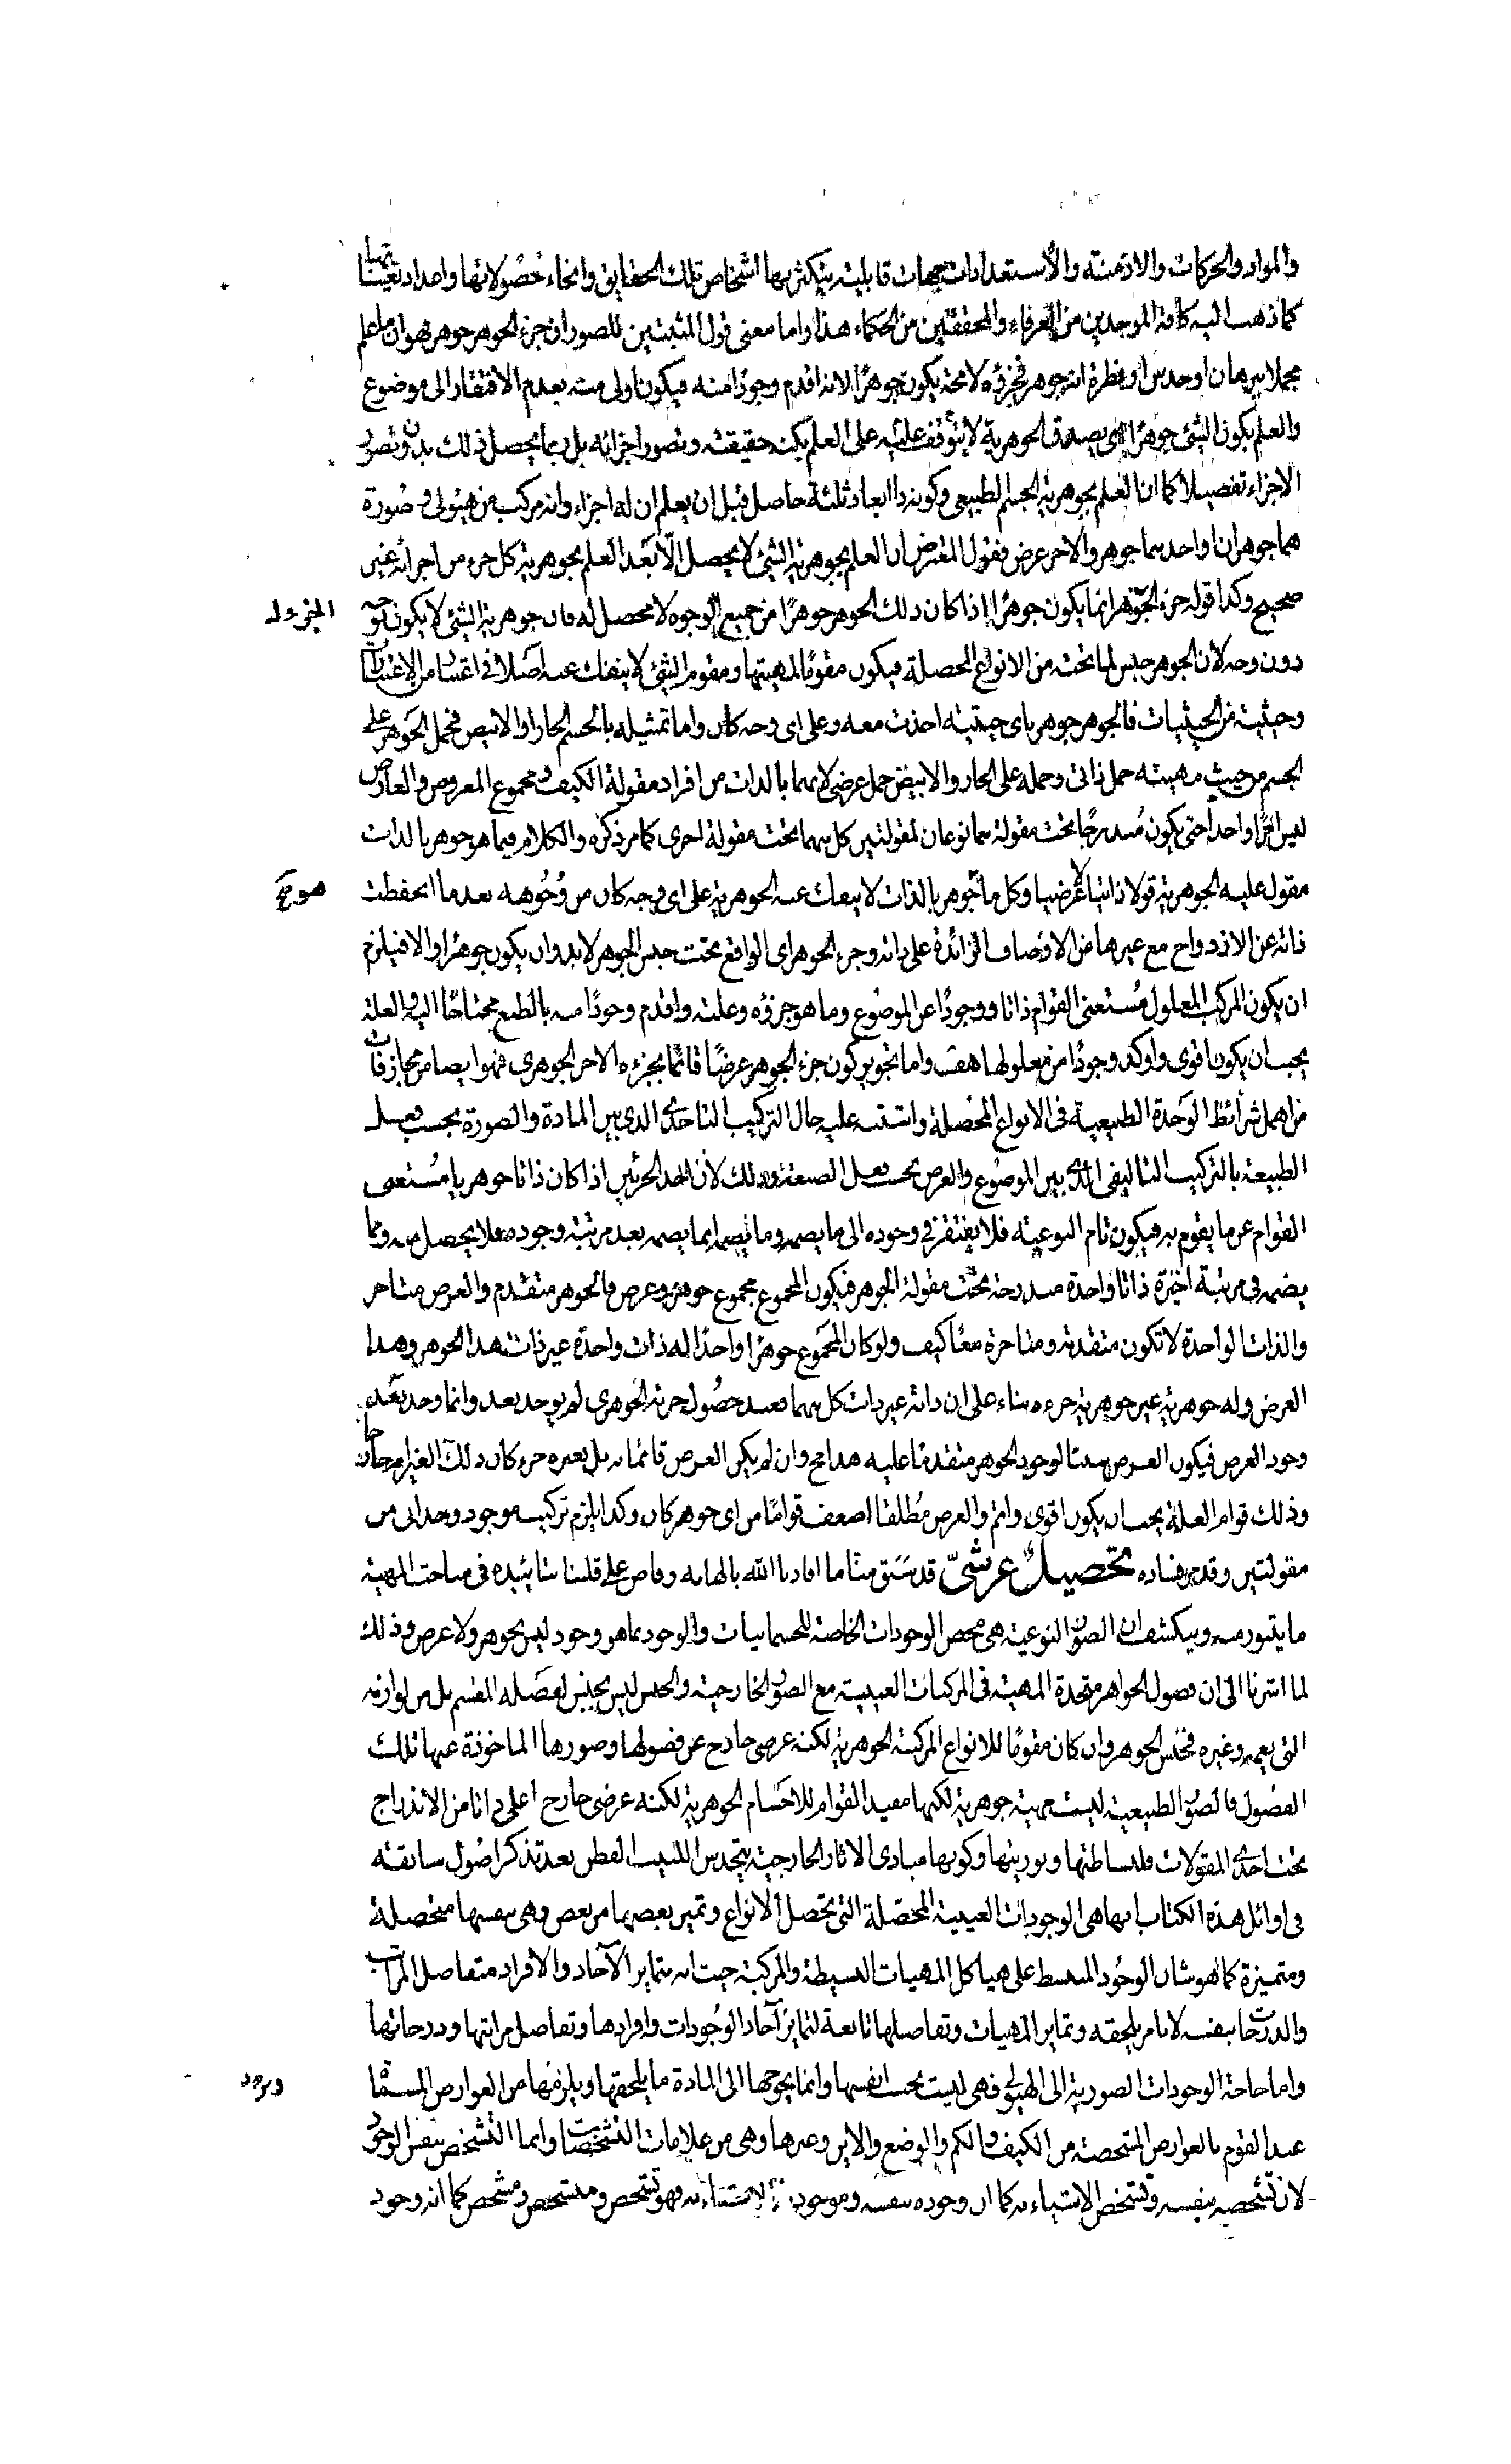 والمواد والحركات والازمنة والاستعدادات جهات قابلية يتكثر بها اشخاص تلك الحقايق وانحاء حصولاتها واعداد تعيناتها
كما ذهب اليه كافة الموحدين من العرفاء والمحققين من الحكماء هذا واما معنى قول المثبتين للصور ان جزء الجوهر جوهر فهو ان ما علم
مجملا ببرهان او حدس او فطرة انه جوهر فجزؤه لامحة يكون جوهرا لانه اقدم وجودا منه فيكون اولى منه بعدم الافتقار الى موضوع
والعلم بكون الشئ جوهرا اى يصدق الجوهرية لا يتوقف عليه على العلم بكنه حقيقته وتصور اجزائه بل ربما يحصل ذلك بدون تصور
الاجزاء تفصيلا كما ان العلم بجوهرية الجسم الطبيعى وكونه ذا ابعاد ثلثة حاصل قبل ان يعلم ان له اجزاء وانه مركب من هيولى وصورة
هما جوهران او احدهما جوهر والاخر عرض فقول المعترض ان العلم بجوهرية الشئ لا يحصل الا بعد العلم بجوهرية كل جزء من اجزائه غير
صحيح وكذا قوله جزء الجوهر انما يكون جوهرا اذا كان ذلك الجوهر جوهرا من جميع الوجوه لا محصل له فان جوهرية الشئ لا يكون بوجه
دون وجه لان الجوهر جنس لما تحته من الانواع المحصلة فيكون مقوما لمهيتها ومقوم الشئ لا ينفك عنه اصلا فى اعتبار من الاعتبارات
وحيثية من الحيثيات فالجوهر جوهر باى حيثية اخذت معه وعلى اى وجه كان واما تمثيله بالجسم الحار او الابيض فحمل الجوهر على
الجسم من حيث مهيته حمل ذاتى وحمله على الحار والابيض حمل عرضى لانهما بالذات من افراد مقولة الكيف ومجموع المعروض والعارض
ليس امرا واحدا حتى يكون مندرجا تحت مقولة بهما نوعان لمقولتين كل منهما تحت مقولة اخرى كما مر ذكره والكلام فيما هو جوهر بالذات
مقول عليه الجوهرية قولا ذاتيا لا عرضيا وكل ما هو جوهر بالذات لا ينفك عنه الجوهرية على اى وجه كان من وجوهه بعدما انحفظت
ذاته عن الازدواج مع غيرها من الاوصاف الزائدة على ذاته وجزء الجوهر اى الواقع تحت جنس الجوهر لا بد وان يكون جوهرا والا فيلزم
ان يكون المركب المعلول مستغنى القوام ذاتا ووجودا عن الموضوع وما هو جزؤه وعلته واقدم وجودا منه بالطبع محتاجا اليه والعلة
يجب ان يكون اقوى واوكد وجودا من معلولها هف واما تجويز كون جزء الجوهر عرضا قائما بجزءه الاخر الجوهرى فهو ايضا من مجازفات
من اهمل شرائط الوحدة الطبيعية فى الانواع المحصلة واشتبه عليه حال التركيب الاتحادى الذى بين المادة والصورة بحسب فعل
الطبيعة بالتركيب التاليفى الذى بين الموضوع والعرض بحسب فعل الصنعة وذلك لان احد الجزئين اذا كان ذاتا جوهريا مستغنى
القوام عن ما يقوم به فيكون تام النوعية فلا يفتقر فى وجوده الى ما يضمه وما يضمه انما يضمه بعد مرتبة وجوده فعلا يحصل منه ومما
يضمه فى مرتبة اخيرة ذاتا واحدة مندرجة تحت مقولة الجوهر فيكون المجموع مجموع جوهر وعرض فالجوهر متقدم والعرض متاخر
والذات الواحدة لا تكون متقدمة ومتاخرة معا كيف ولو كان المجموع جوهرا واحدا له ذات واحدة غير ذات هذا الجوهر وهذا
العرض وله جوهرية غير جوهرية جزءه بناء على ان ذاته غير ذات كل منهما فعند حصول جزئه الجوهرى لم يوجد بعد وانما وجد بعد
وجود العرض فيكون العرض مبدئا لوجود الجوهر متقدما عليه هذا مح وان لم يكن العرض قائما به بل بغيره جزء كان ذلك الغير ام خارجا
وذلك قوام العلة يجب ان يكون اقوى واتم والعرض مطلقا اضعف قواما من اى جوهر كان وكذا يلزم تركيب موجود وحدانى من
مقولتين وقد مر فساده تحصيل عرشى قد سبق منا ما افادنا الله بالهامه وفاض على قلبنا بتائيده فى مباحث المهية
ما يتنور منه وينكشف ان الصور النوعية هى محض الوجودات الخاصة للجسمانيات والوجود بما هو وجود ليس بجوهر ولا عرض وذلك
لما اشرنا الى ان فصول الجواهر متحدة المهية فى المركبات العينية مع الصور الخارجية والجنس ليس بجنس لفصله المقسم بل من لوازمه
التى يعمه وغيره فجنس الجوهر وان كان مقوما للانواع المركبة الجوهرية لكنه عرضى خارج عن فصولها وصورها الماخوذة عنها تلك
الفصول فالصور الطبيعية ليست بمهية جوهرية لكنها مفيد القوام للاجسام الجوهرية لكنه عرضى خارج اعلى ذاتا من الاندراج
تحت احدى المقولات فلبساطتها ونوريتها وكونها مبادى الاثار الخارجية يتحدس اللبيب الفطن بعد تذكر اصول سابقة
فى اوائل هذا الكتاب انها هى الوجودات العينية المحصلة التى تحصل الانواع وتميز بعضها من بعض وهى بنفسها متحصلة
ومتميزة كما هو شان الوجود المنبسط على هياكل المهيات البسيطة والمركبة حيث انه متمايز الآحاد والافراد متفاضل المراتب
والدرجات بنفسه لا بامر يلحقه وتمايز المهيات وتفاضلها تابعة لتمايز آحاد الوجودات وافرادها وتفاضل مراتبها ودرجاتها
واما حاجة الوجودات الصورية الى الهيولى فهى ليست بحسب انفسها وانما يحوجها الى المادة ما يلحقها ويلزمها من العوارض المسماة
عند القوم بالعوارض المشخصة من الكيف والكم والوضع والاين وغيرها وهى من علامات التشخصات وانما التشخص بنفس الوجود
لان تشخصه بنفسه وتشخص الاشياء به كما ان وجوده بنفسه وموجودية الاشياء به فهو تشخص ومتشخص ومشخص كما انه وجود